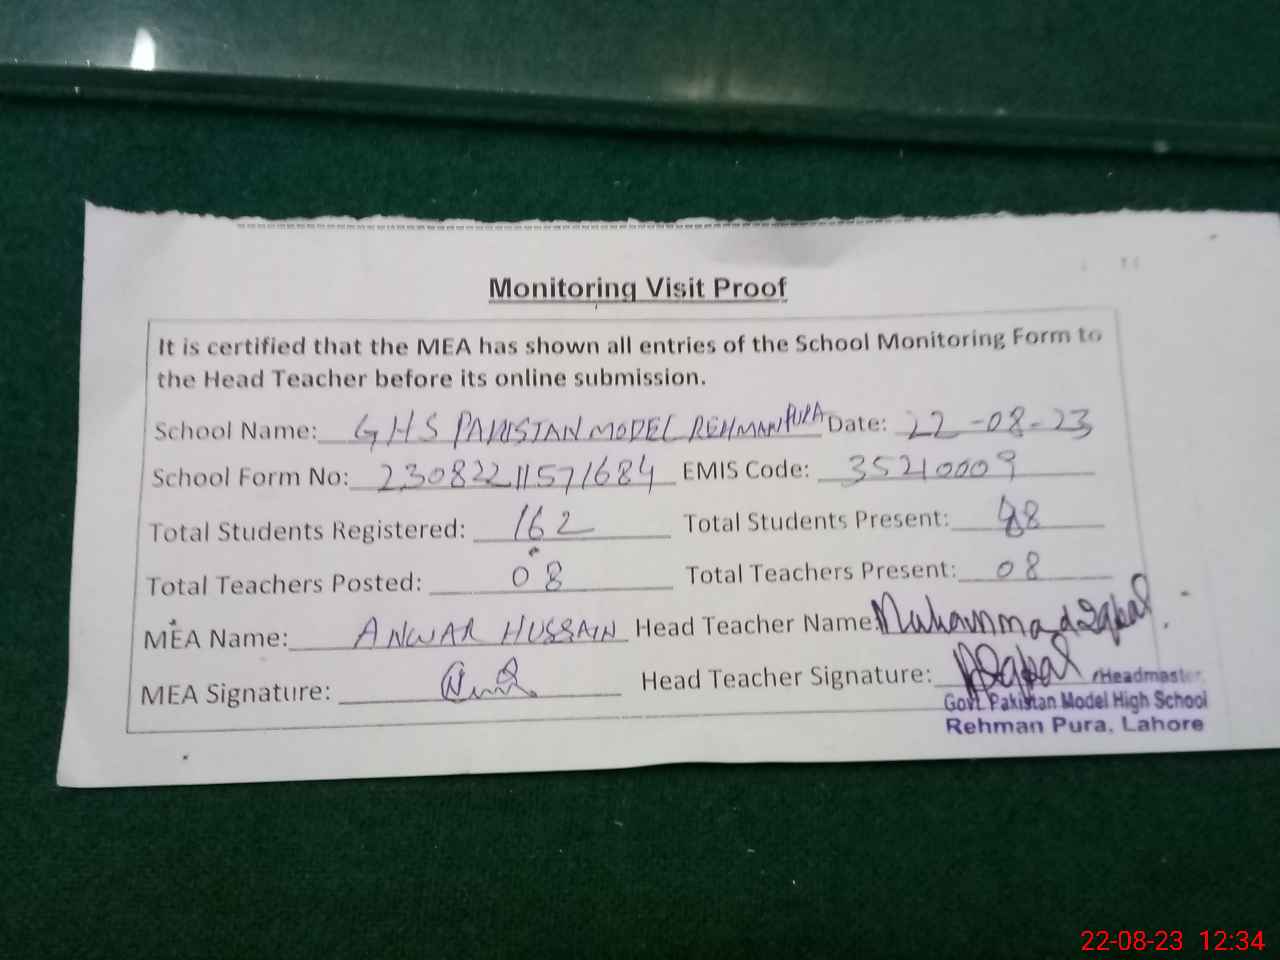 Monitoring Visit Proof
It is certified that the MEA has shown all entries of the School Monitoring Form to
the Head Teacher before its online submission.
School Name: GHS PAKISTAN MODEL REHMANPURA Date: 22-08-23
School Form No: 23082211571684 EMIS Code: 35210009
Total Students Registered: 162 Total Students Present: 88
Total Teachers Posted: 08 Total Teachers Present: 08
MEA Name: ANWAR HUSSAIN Head Teacher Name: Muhammad Iqbal
MEA Signature: Head Teacher Signature: Iqbal
r/Headmaster
Govt. Pakistan Model High School
Rehman Pura, Lahore
22-08-23 12:34